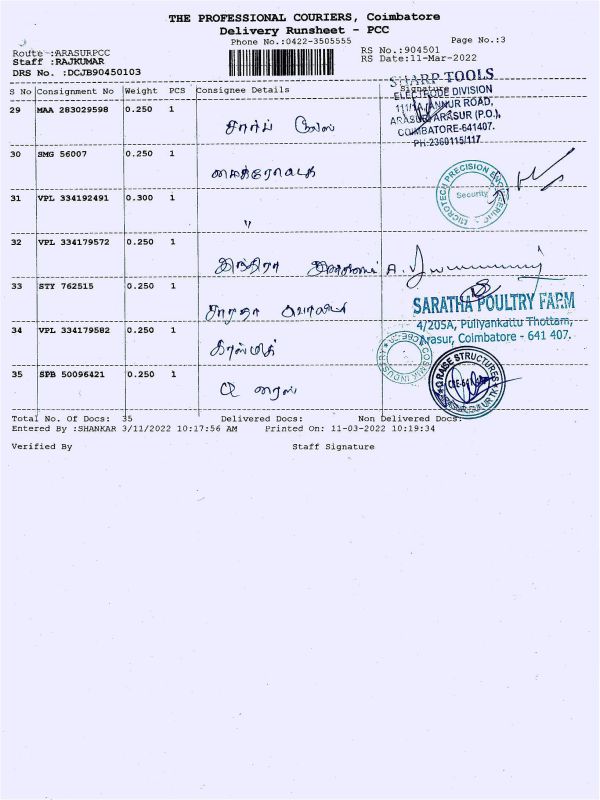 THE PROFESSIONAL COURIERS, Coimbatore
Delivery Runsheet - PCC
Phone No.:0422-3505555 Page No.:3
Route :ARASURPCC RS No.:904501
Staff :RAJKUMAR RS Date:11-Mar-2022
DRS No. :DCJB90450103
S No Consignment No Weight PCS Consignee Details Signature
SHARP TOOLS
ELECTRODE DIVISION
29 MAA 283029598 0.250 1
ANNUR ROAD,
ARASUR (P.O.),
COIMBATORE-641407.
PH-2360115/117
30 SMG 56007 0.250 1
MICROTECH PRECISION
Security
31 VPL 334192491 0.300 1
"
32 VPL 334179572 0.250 1
இந்திரா
33 STY 762515 0.250 1
சாரதா
SARATHA POULTRY FARM
4/205A, Puliyankattu Thottam,
Arasur, Coimbatore - 641 407.
34 VPL 334179582 0.250 1
COSMIK INDUSTRY
35 SPB 50096421 0.250 1
Q ரைஸ்
Q RAISE STRUCTURES
Total No. Of Docs: 35 Delivered Docs: Non Delivered Docs:
Entered By :SHANKAR 3/11/2022 10:17:56 AM Printed On: 11-03-2022 10:19:34
Verified By Staff Signature